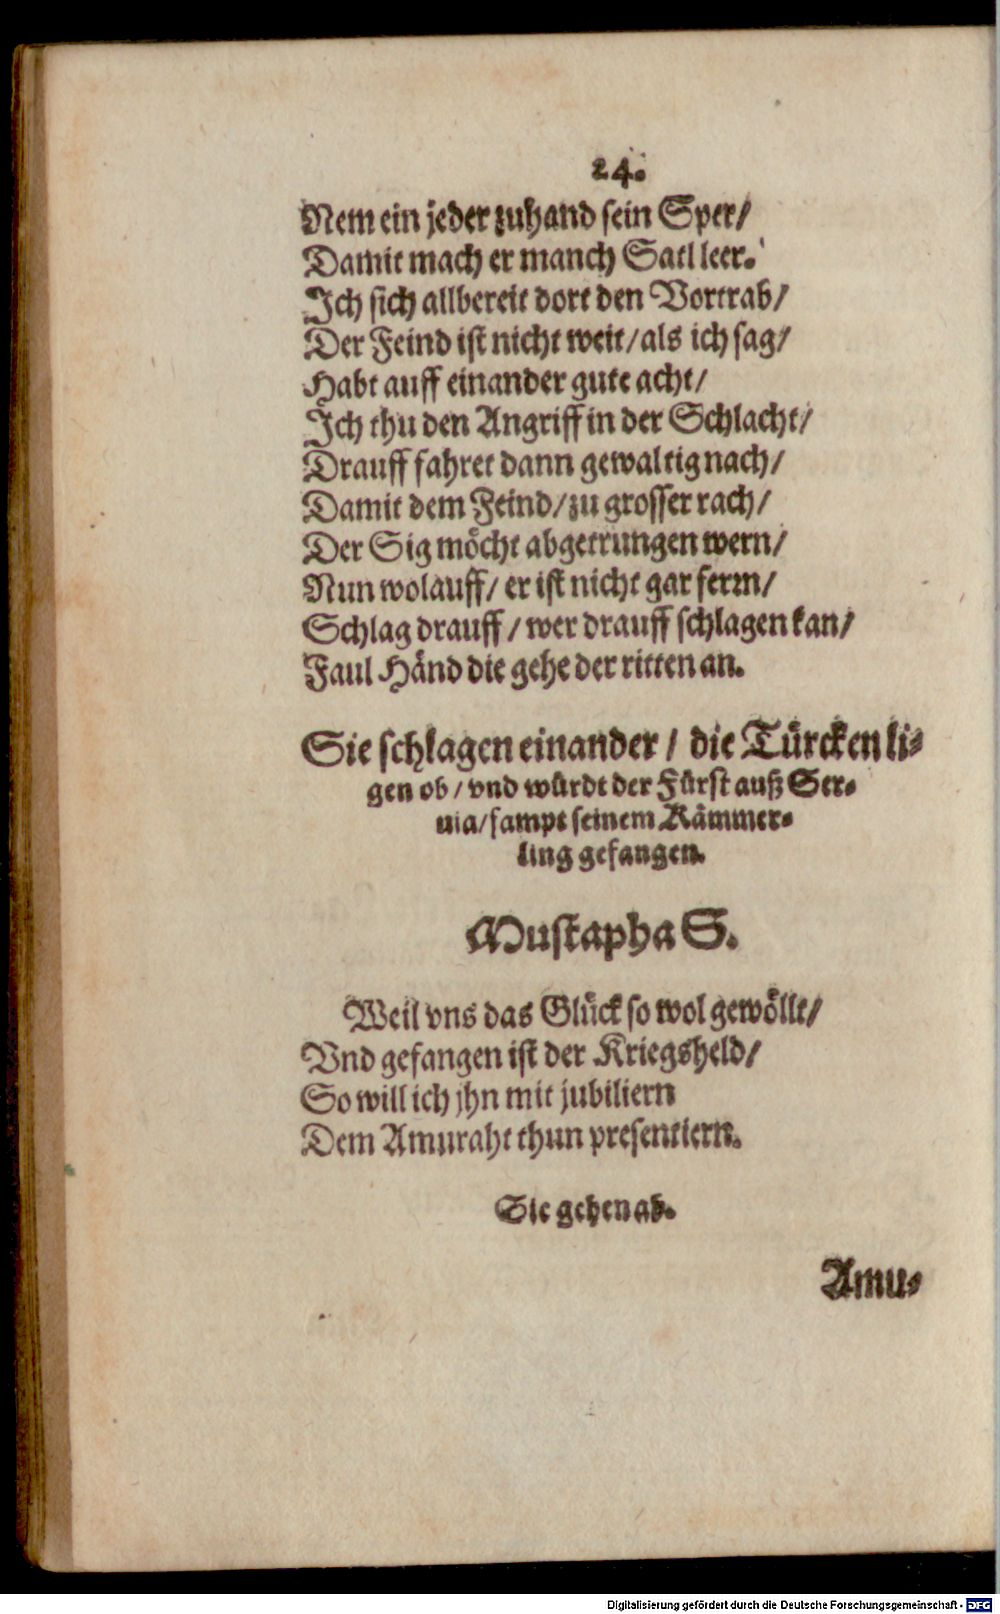 24.
Nem ein jeder zuhand sein Sper/
Damit mach er manch Satl leer.
Ich sich allbereit dort den Vortrab/
Der Feind ist nicht weit/ als ich sag/
Habt auff einander gute acht/
Ich thu den Angriff in der Schlacht/
Drauff fahret dann gewaltig nach/
Damit dem Feind/ zu grosser rach/
Der Sig möcht abgetrungen wern/
Nun wolauff/ er ist nicht gar ferrn/
Schlag drauff/ wer drauff schlagen kan/
Faul Händ die gehe der ritten an.
Sie schlagen einander/ die Türcken li-
gen ob/ vnd würdt der Fürst auß Ser-
uia/ sampt seinem Kämmer-
ling gefangen.
Mustapha S.
Weil vns das Glück so wol gewöllt/
Vnd gefangen ist der Kriegsheld/
So will ich jhn mit jubiliern
Dem Amuraht thun presentiern.
Sie gehen ab.
Amu-
Digitalisierung gefördert durch die Deutsche Forschungsgemeinschaft - DFG